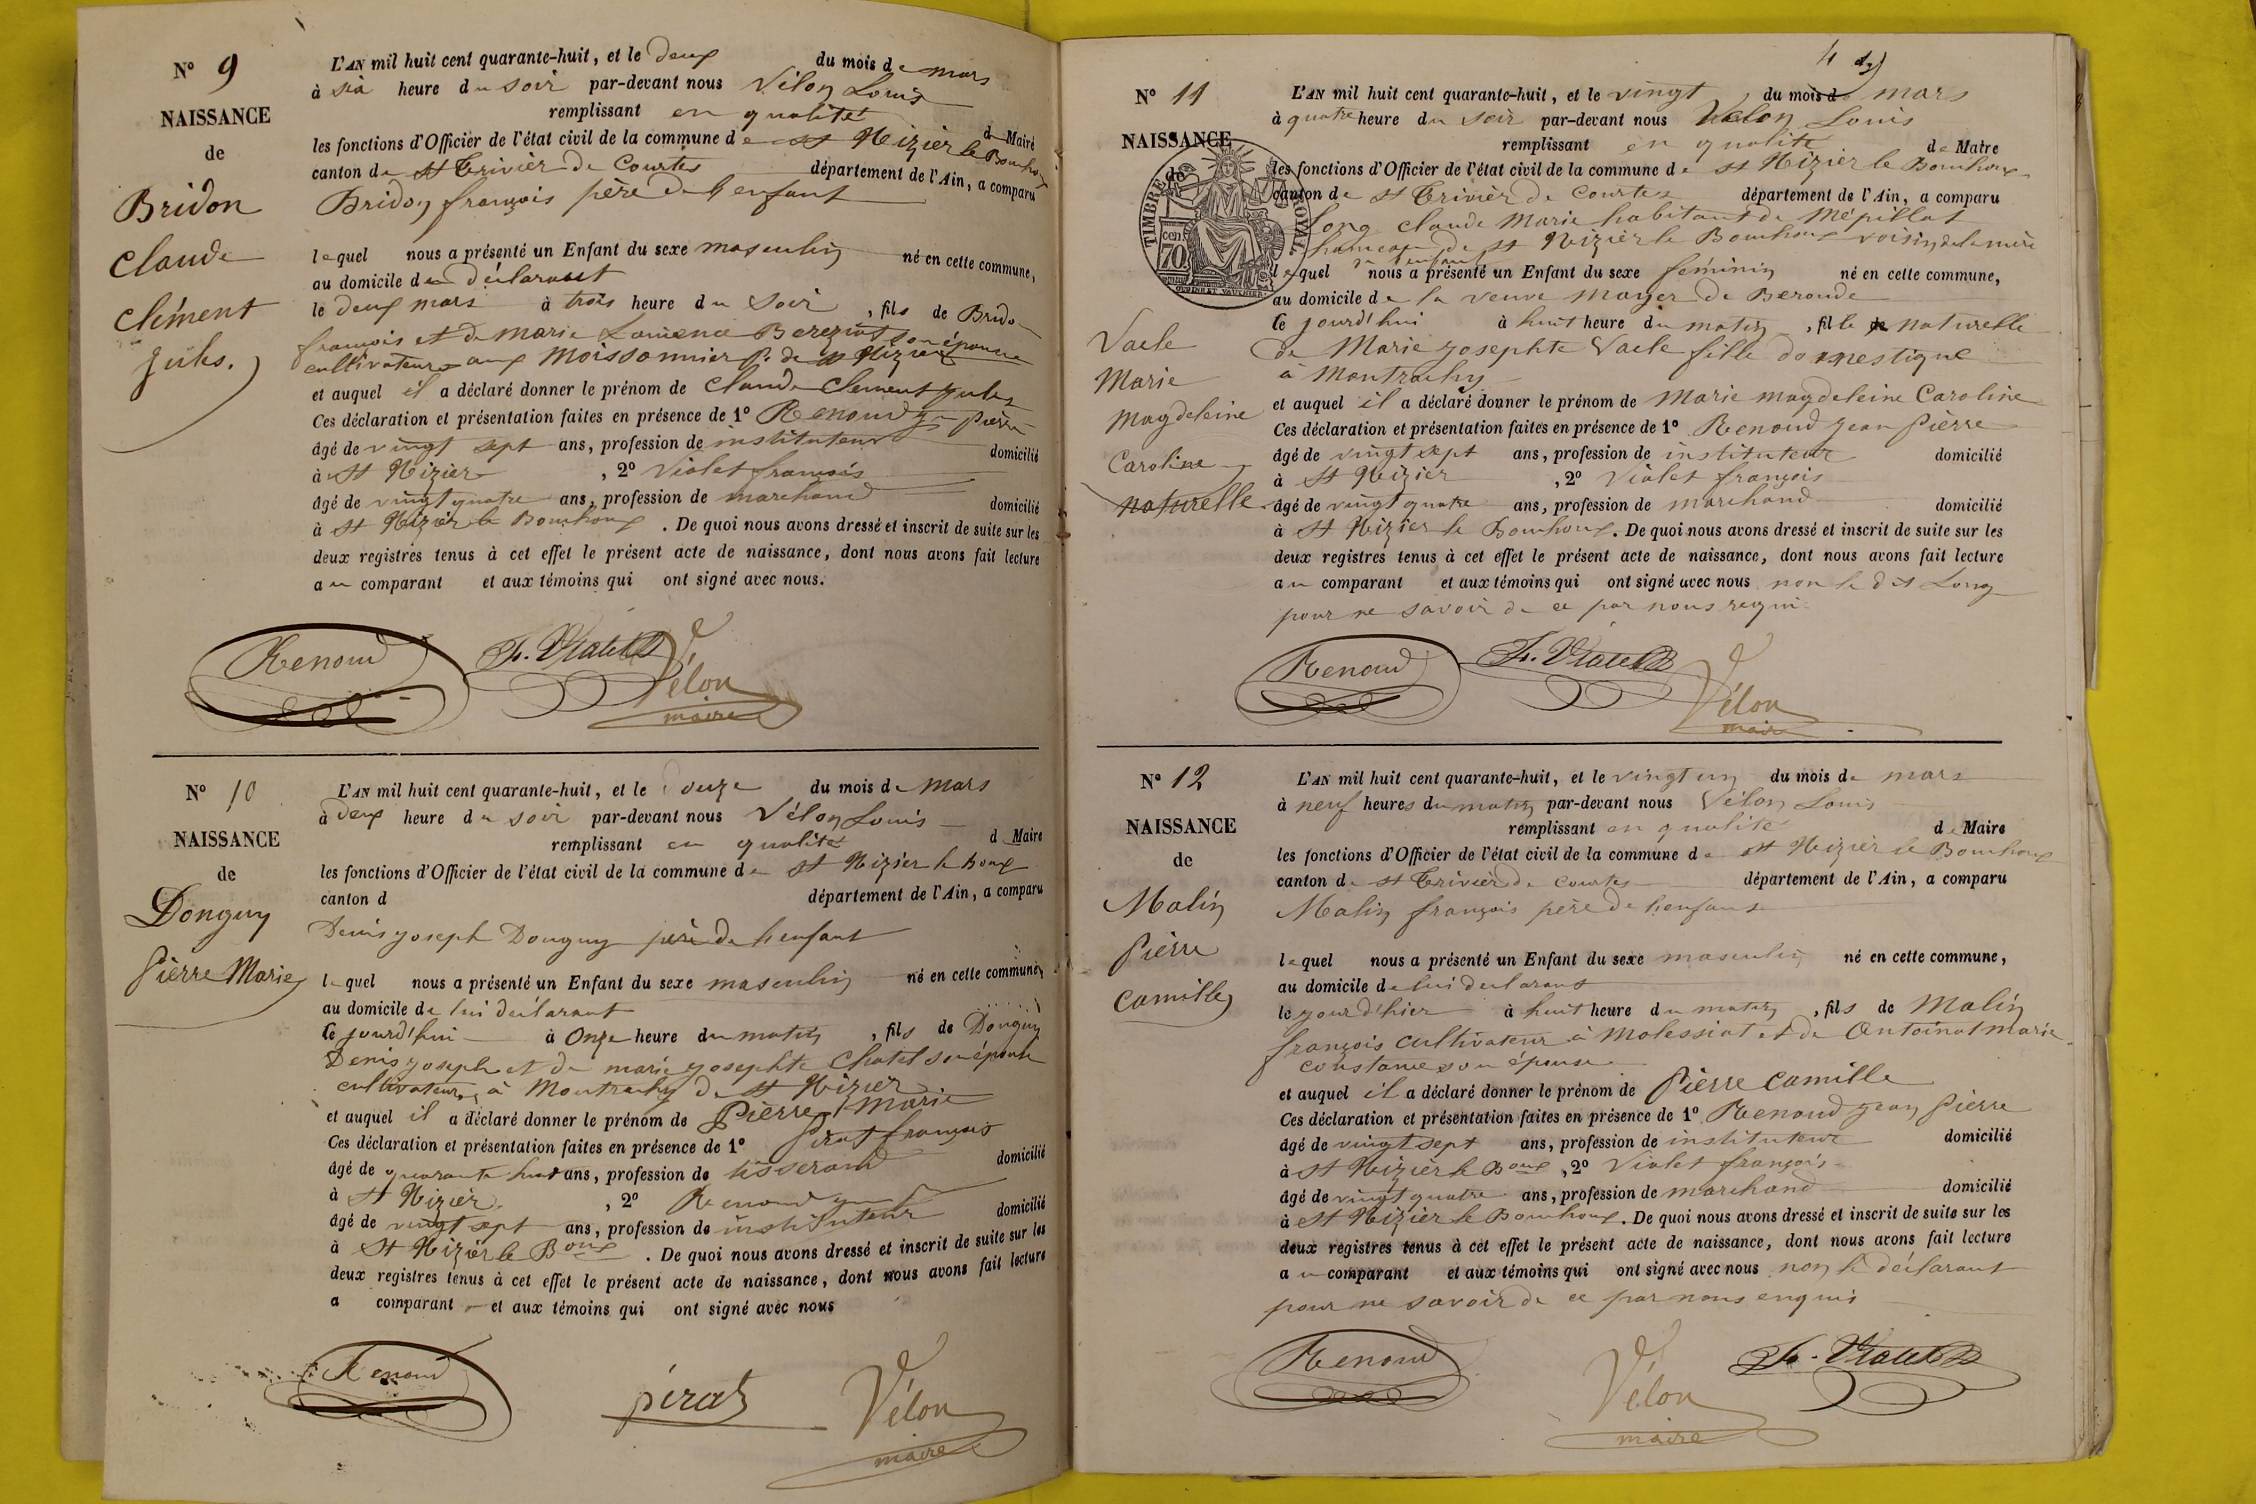 N° 9
NAISSANCE
de
Bridon
Claude
Clément
Jules.
L'AN mil huit cent quarante-huit, et le deux du mois de mars
à six heure du soir par-devant nous Vélon Louis
remplissant en qualité de Maire
les fonctions d'Officier de l'état civil de la commune de St Nizier le Bouchoux
canton de St Trivier de Courtes département de l'Ain, a comparu
Bridon françois père de l'enfant
lequel nous a présenté un Enfant du sexe masculin né en cette commune,
au domicile du déclarant
le deux mars à trois heure du soir, fils de Bridon
françois et de marie Bereziat son épouse
cultivateurs aux Moissonnier p. de St Nizier
et auquel il a déclaré donner le prénom de Claude Clement Jules
Ces déclaration et présentation faites en présence de 1° Renoud jn pierre
âgé de vingt sept ans, profession de instituteur domicilié
à St Nizier, 2° Violet françois
âgé de vingt quatre ans, profession de marchand domicilié
à St Nizier le Bouchoux. De quoi nous avons dressé et inscrit de suite sur les
deux registres tenus à cet effet le présent acte de naissance, dont nous avons fait lecture
au comparant et aux témoins qui ont signé avec nous.
Renoud
Vélon
maire
N° 10
NAISSANCE
de
Donguy
Pièrre Marie
L'AN mil huit cent quarante-huit, et le douze du mois de mars
à deux heure du soir par-devant nous Vélon Louis
remplissant en qualité d Maire
les fonctions d'Officier de l'état civil de la commune de St Nizier le Boux
canton d département de l'Ain, a comparu
Denis joseph Donguy père de l'enfant
lequel nous a présenté un Enfant du sexe masculin né en cette commune,
au domicile de lui déclarant
le jourd'hui à onze heure du matin, fils de Donguy
Denis joseph et de marie josephte Chatel son épouse
cultivateurs à Montrachy de St Nizier
et auquel il a déclaré donner le prénom de Pièrre Marie
Ces déclaration et présentation faites en présence de 1° Pirat françois
âgé de quarante huit ans, profession de tisserand domicilié
à St Nizier, 2° Renoud jn p
âgé de vingt sept ans, profession de instituteur domicilié
à St Nizier le Boux. De quoi nous avons dressé et inscrit de suite sur les
deux registres tenus à cet effet le présent acte de naissance, dont nous avons fait lecture
a comparant et aux témoins qui ont signé avec nous
Renoud
pirat
Vélon
maire
4
N° 11
NAISSANCE
de
TIMBRE ROYAL
70 cen.
Vacle
Marie
Magdeleine
Caroline
naturelle
L'AN mil huit cent quarante-huit, et le vingt du mois de mars
à quatre heure du soir par-devant nous Velon Louis
remplissant en qualité de Maire
les fonctions d'Officier de l'état civil de la commune de St Nizier le Bouchoux
canton de St Trivier de Courtes département de l'Ain, a comparu
Long Claude Marie habitant de Mépillat
hameau de St Nizier le Bouchoux voisin de la mère
de l'enfant
lequel nous a présenté un Enfant du sexe feminin né en cette commune,
au domicile de la veuve Moyer de Beroude
le jourd'hui à huit heure du matin, fille naturelle
de Marie josephte Vacle fille domestique
à Montrachy
et auquel il a déclaré donner le prénom de Marie magdeleine Caroline
Ces déclaration et présentation faites en présence de 1° Renoud Jean Pièrre
âgé de vingt sept ans, profession de instituteur domicilié
à St Nizier, 2° Violet françois
âgé de vingt quatre ans, profession de marchand domicilié
à St Nizier le Bouhoux. De quoi nous avons dressé et inscrit de suite sur les
deux registres tenus à cet effet le présent acte de naissance, dont nous avons fait lecture
au comparant et aux témoins qui ont signé avec nous non le dit Long
pour ne savoir de ce par nous requi
Renoud
Vélon
maire
N° 12
NAISSANCE
de
Malin
Pièrre
Camille
L'AN mil huit cent quarante-huit, et le vingt un du mois de mars
à neuf heures du matin par-devant nous Vélon Louis
remplissant en qualité de Maire
les fonctions d'Officier de l'état civil de la commune de St Nizier le Bouchoux
canton de St Trivier de Courtes département de l'Ain, a comparu
Malin françois père de l'enfant
lequel nous a présenté un Enfant du sexe masculin né en cette commune,
au domicile de lui déclarant
le jour d'hier à huit heure du matin, fils de Malin
françois cultivateur à Molessiat et de Antoinat marie
constance son épouse
et auquel il a déclaré donner le prénom de Pièrre Camille
Ces déclaration et présentation faites en présence de 1° Renoud Jean Pièrre
âgé de vingt sept ans, profession de instituteur domicilié
à St Nizièr le Boux, 2° Violet françois
âgé de vingt quatre ans, profession de marchand domicilié
à St Nizièr le Bouchoux. De quoi nous avons dressé et inscrit de suite sur les
deux registres tenus à cet effet le présent acte de naissance, dont nous avons fait lecture
au comparant et aux témoins qui ont signé avec nous non le déclarant
pour ne savoir de ce par nous enquis
Renoud
Vélon
maire